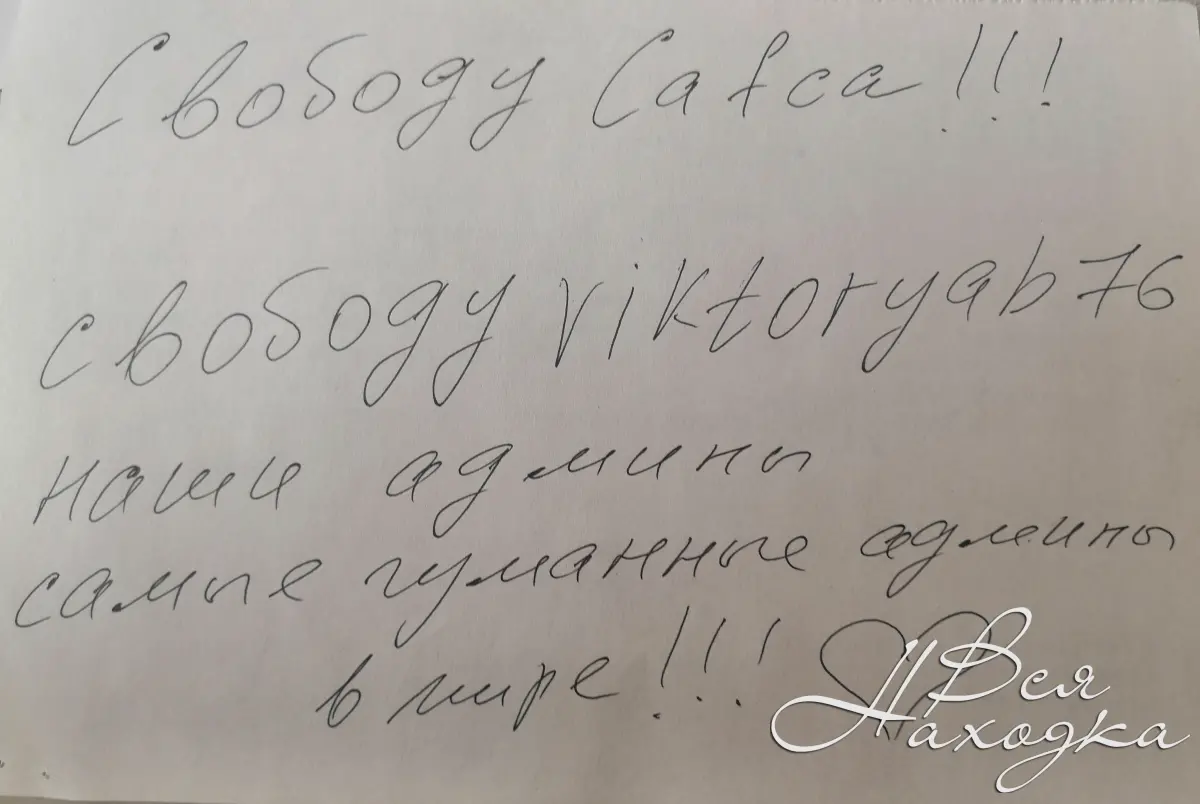 Свободу Cafca!!!
свободу viktoryab76
наши админы
самые гуманные админы
в мире!!!
Вся
Находка